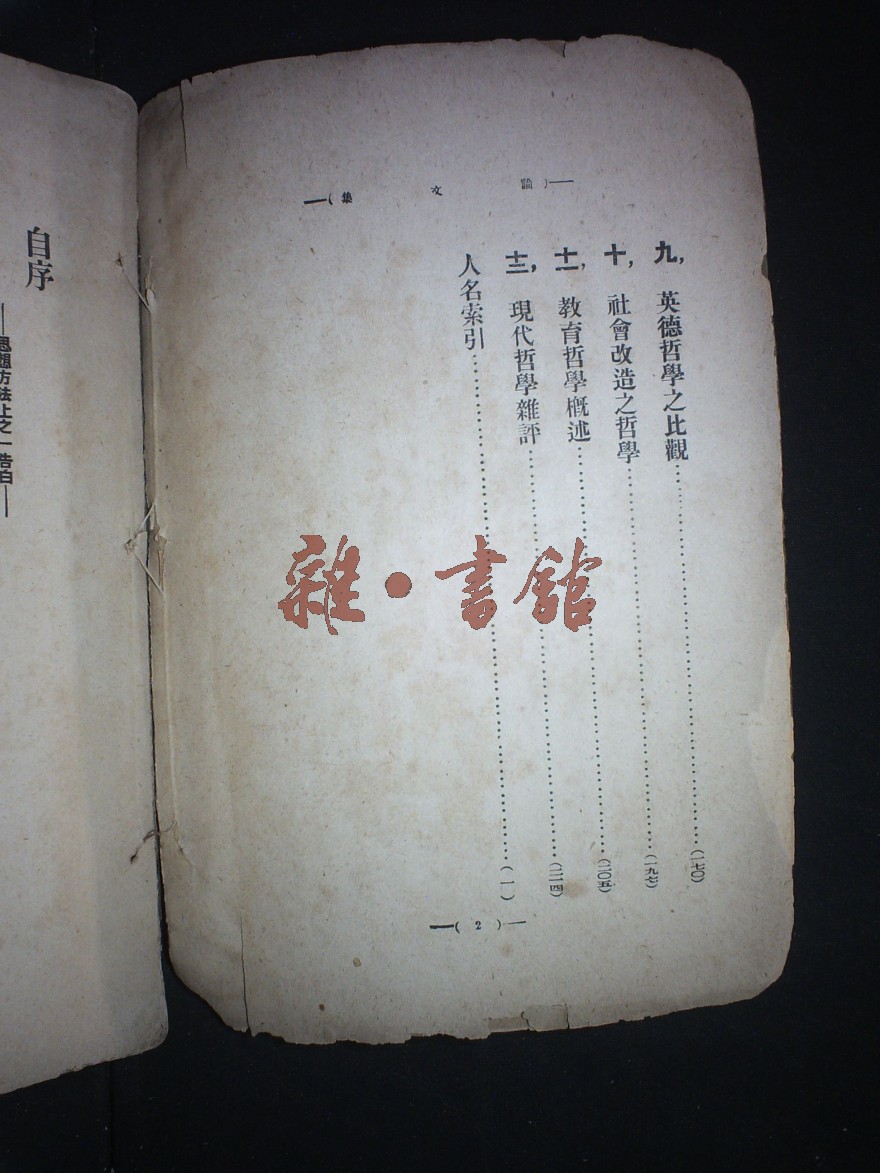 —(論文集)—
九，英德哲學之比觀……(一七〇)
十，社會改造之哲學……(一九七)
十一，教育哲學概述……(二〇五)
十二，現代哲學雜評……(二一四)
人名索引……(一)
—( 2 )—
自序
——思想方法上之一告白——
雜・書館